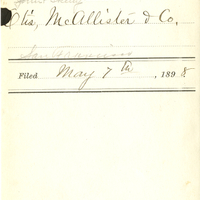 Otis, McAllister & Co.
San Francisco
Filed May 7th, 1898